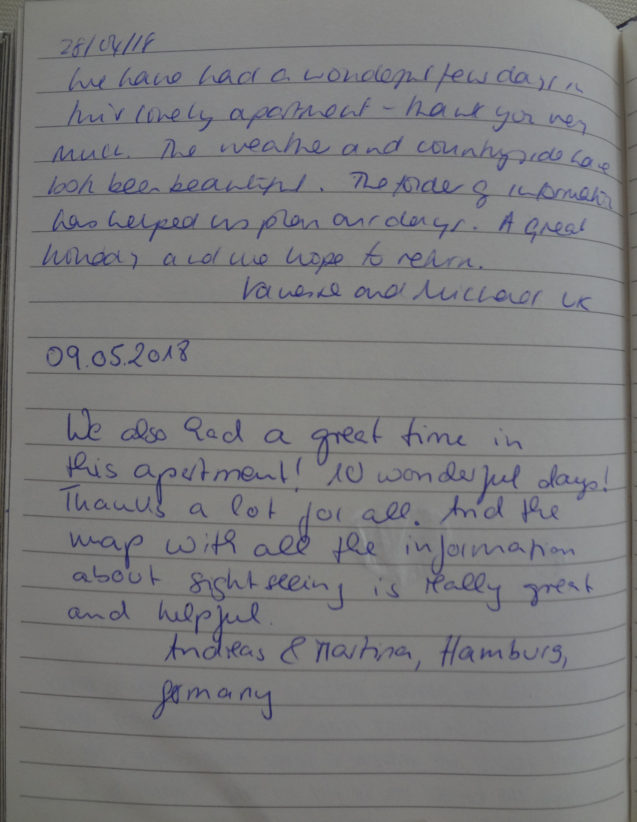 28/04/18
We have had a wonderful few days in
this lovely apartment - thank you very
much. The weather and countryside have
both been beautiful. The folder of information
has helped us plan our days. A great
holiday and we hope to return.
and Michael UK
09.05.2018
We also had a great time in
this apartment! 10 wonderful days!
Thanks a lot for all. And the
map with all the information
about sightseeing is really great
and helpful.
Andreas & Martina, Hamburg,
Germany